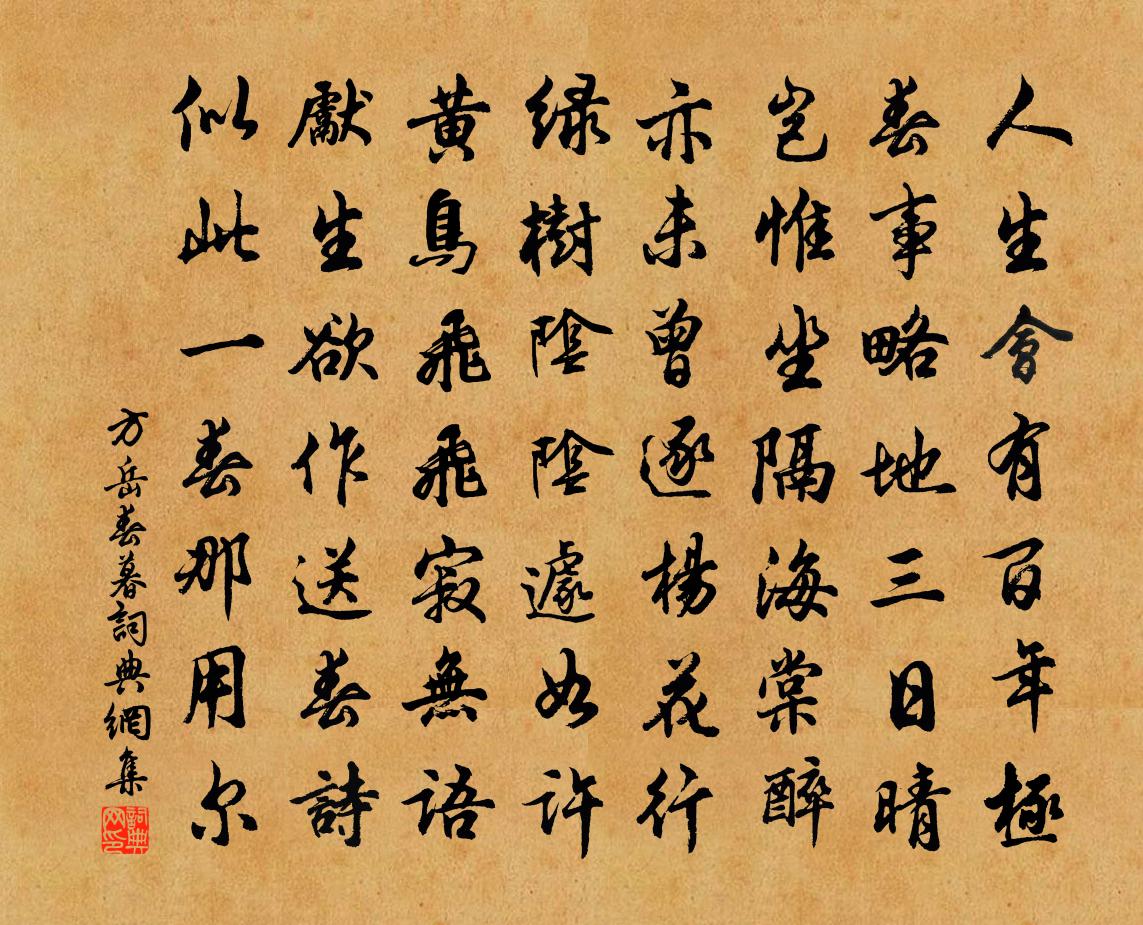 人生會有百年極
春事略地三日晴
豈惟坐隔海棠醉
亦未曾逐楊花行
緑樹陰陰遽如許
黄鳥飛飛寂無語
獻生欲作送春詩
似此一春那用尔
方岳春暮詞典網集
詞典网印